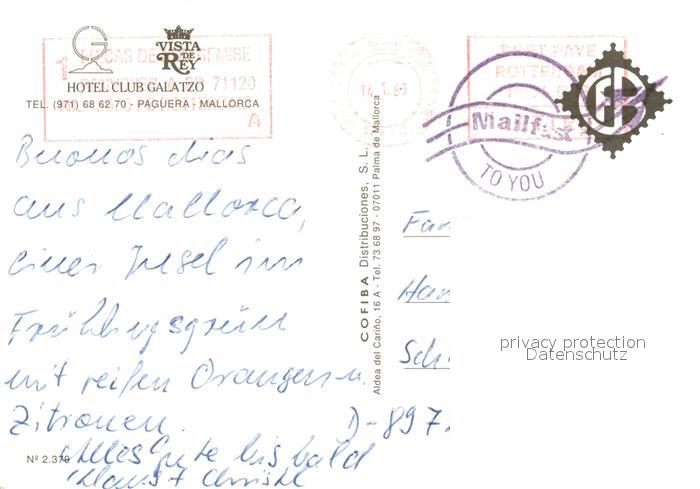 VISTA
DE
REY
HOTEL CLUB GALATZO
TEL. (971) 68 62 70 - PAGUERA - MALLORCA
71120
A
14.1.93
PORT PAYE
ROTTERDAM
Mailfast
TO YOU
Buenos dias
aus Mallorca,
einer Insel im
Frühlingsgrün
mit reifen Orangen u.
Zitronen.
Alles Gute bis bald
Klaus + Christl
Nº 2.379
COFIBA Distribuciones, S. L.
Aldea del Cariño, 16 A - Tel. 73 68 97 - 07011 Palma de Mallorca
Fam
Han
Sch
D-897
privacy protection
Datenschutz